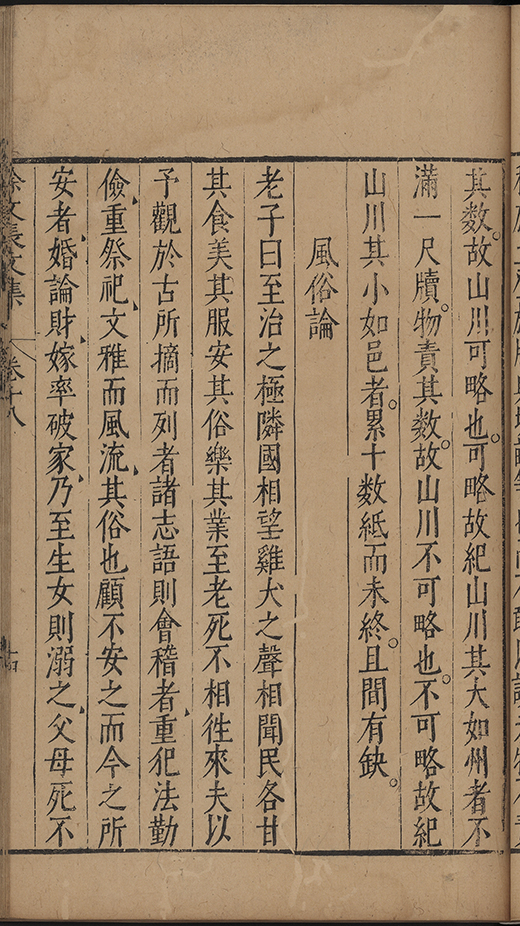 其数。故山川可略也。可略故紀山川其大如州者不
滿一尺牘。物責其数。故山川不可略也。不可略故紀
山川其小如邑者。累十数紙而未終。且間有缺。
風俗論
老子曰至治之極隣國相望雞犬之聲相聞民各甘
其食美其服安其俗樂其業至老死不相徃來夫以
予觀於古所摘而列者諸志語則會稽者重犯法勤
儉、重祭祀、文雅而風流、其俗也顧不安之而今之所
安者、婚論財、嫁率破家、乃至生女則溺之、父母死不
徐文長文集 卷十八